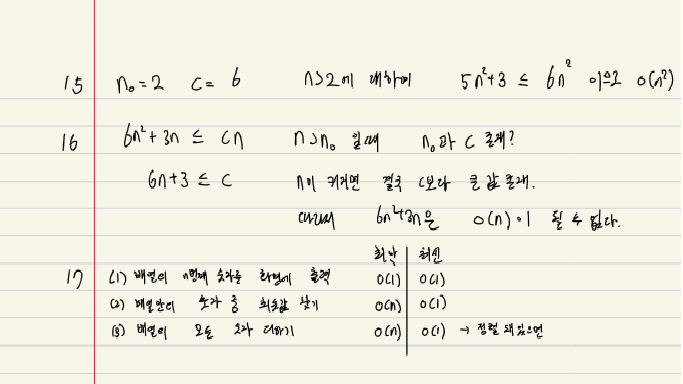 15 n₀=2 c=6 n>2에 대하여 5n²+3 ≤ 6n² 이므로 O(n²)
16 6n²+3n ≤ cn n>n₀ 일때 n₀과 c 존재?
6n+3 ≤ c n이 커지면 결국 c보다 큰 값 존재.
따라서 6n²+3n은 O(n)이 될 수 없다.
최악 최선
17 (1) 배열의 n번째 숫자를 화면에 출력 O(1) O(1)
(2) 배열안의 숫자 중 최소값 찾기 O(n) O(1)
(3) 배열의 모든 숫자 더하기 O(n) O(1) → 정렬 돼있으면